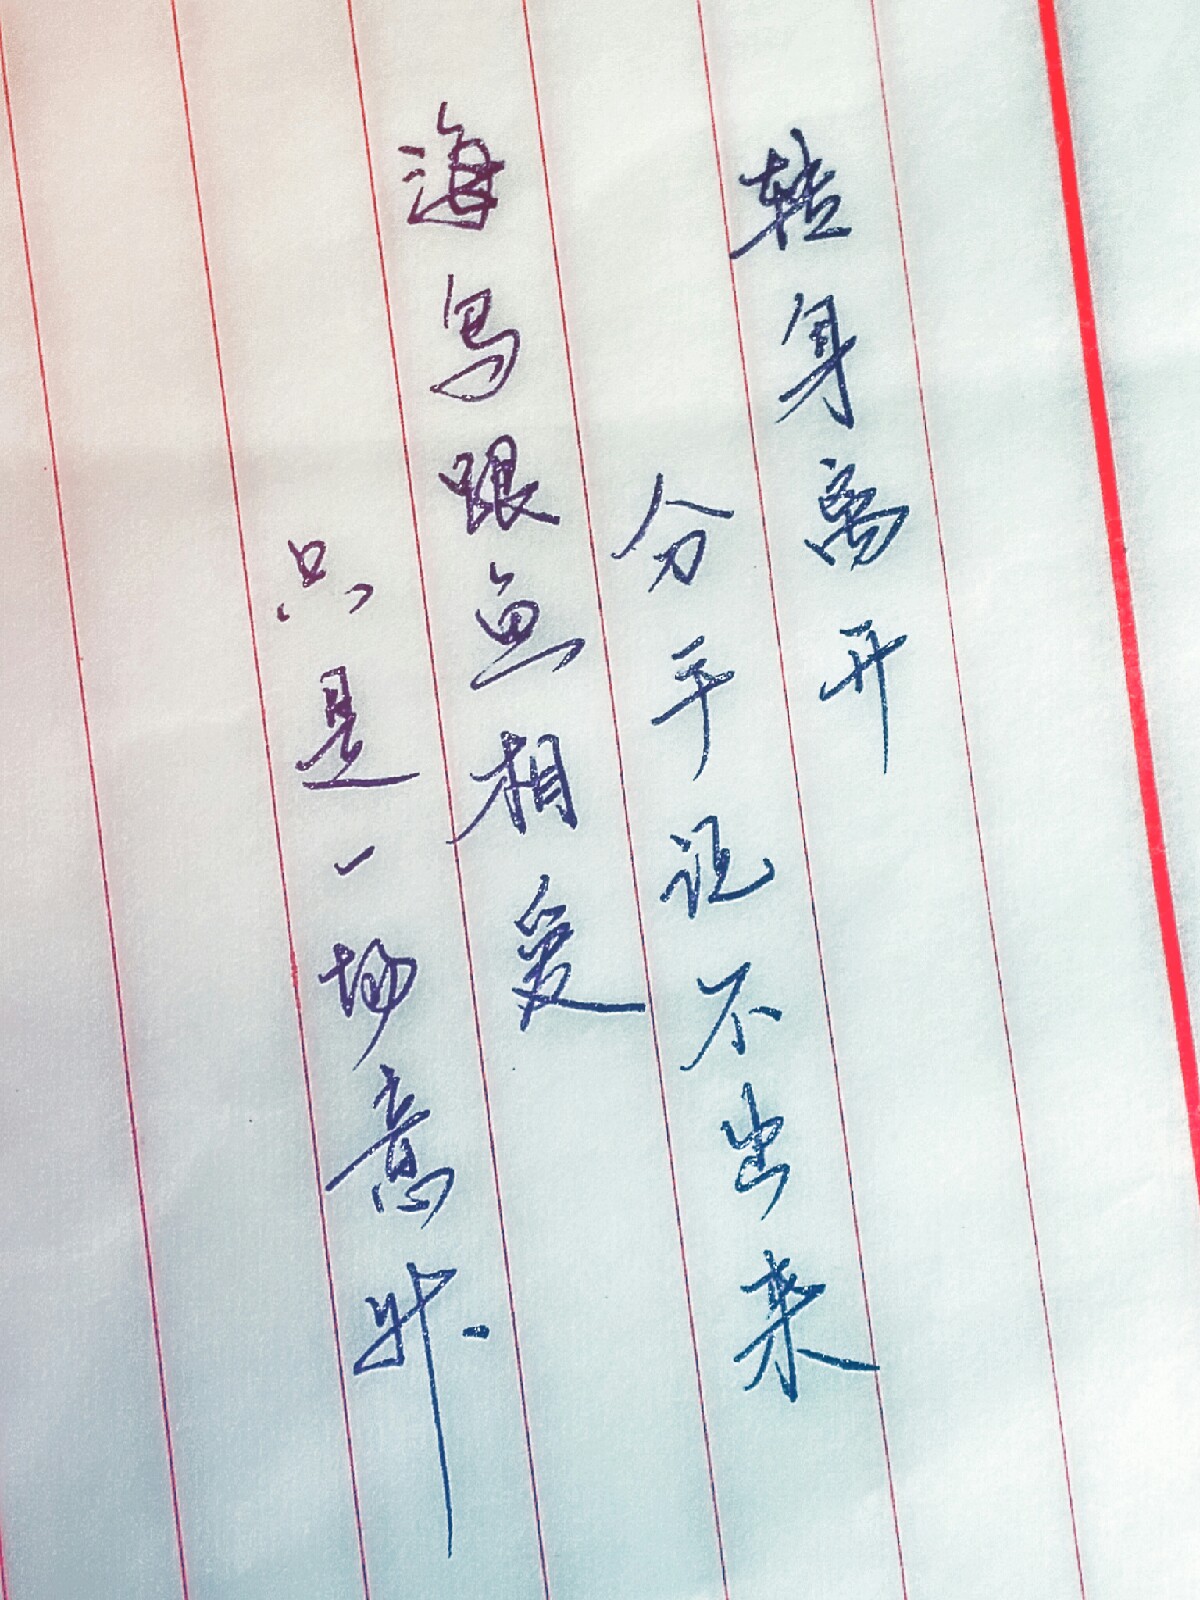 转身离开
分手说不出来
海鸟跟鱼相爱
只是一场意外